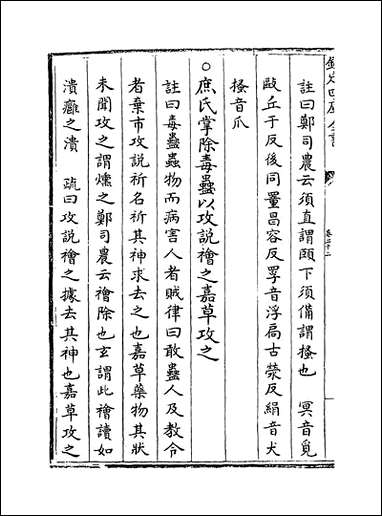 欽定四庫全書
卷三十二
註曰鄭司農云須直謂頤下須備謂搔也 冥音覓
敺丘于反後同罿昌容反罦音浮扄古熒反絹音犬
搔音爪
○庶氏掌除毒蠱以攻說禬之嘉草攻之
註曰毒蠱蟲物而病害人者賊律曰敢蠱人及教令
者棄市攻說祈名祈其神求去之也嘉草藥物其狀
未聞攻之謂燻之鄭司農云禬除也玄謂此禬讀如
潰癰之潰 疏曰攻說禬之據去其神也嘉草攻之